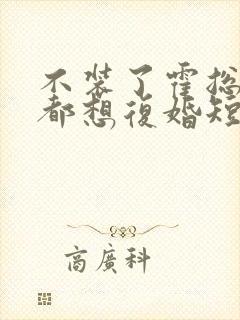 不装了霍总
都想復婚短
商廣科